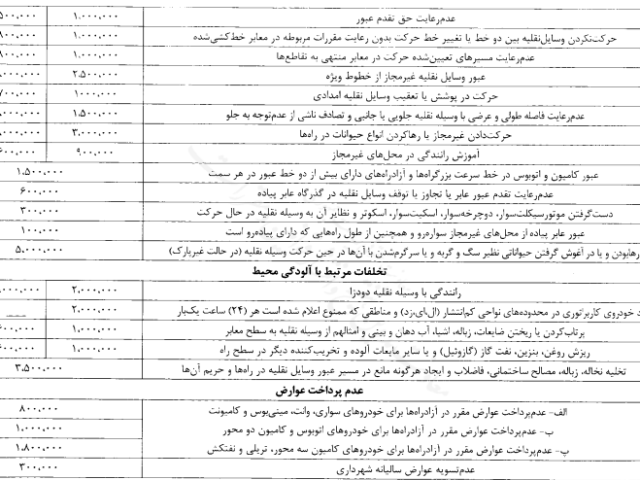 عدم‌رعایت حق تقدم عبور ۱.۰۰۰،۰۰۰
حرکت‌نکردن وسایل‌نقلیه بین دو خط یا تغییر خط حرکت بدون رعایت مقررات مربوطه در معابر خط‌کشی‌شده ۱.۰۰۰،۰۰۰
عدم‌رعایت مسیرهای تعیین‌شده حرکت در معابر منتهی به تقاطع‌ها ۱.۰۰۰،۰۰۰
عبور وسایل نقلیه غیرمجاز از خطوط ویژه ۲.۵۰۰،۰۰۰
حرکت در پوشش یا تعقیب وسایل نقلیه امدادی ۱۰۰۰،۰۰۰
عدم‌رعایت فاصله طولی و عرضی با وسیله نقلیه جلویی یا جانبی و تصادف ناشی از عدم‌توجه به جلو ۱.۵۰۰،۰۰۰
حرکت‌دادن غیرمجاز یا رهاکردن انواع حیوانات در راه‌ها ۳.۰۰۰،۰۰۰
آموزش رانندگی در محل‌های غیرمجاز ۹۰۰،۰۰۰
عبور کامیون و اتوبوس در خط سرعت بزرگراه‌ها و آزادراه‌های دارای بیش از دو خط عبور در هر سمت ۱.۵۰۰،۰۰۰
عدم‌رعایت تقدم عبور عابر یا تجاوز یا توقف وسایل نقلیه در گذرگاه عابر پیاده ۶۰۰،۰۰۰
دست‌گرفتن موتورسیکلت‌سوار، دوچرخه‌سوار، اسکیت‌سوار، اسکوتر و نظایر آن به وسیله نقلیه در حال حرکت ۳۰۰،۰۰۰
عبور عابر پیاده از محل‌های غیرمجاز سواره‌رو و همچنین از طول راه‌هایی که دارای پیاده‌رو است ۱۰۰،۰۰۰
و یا در آغوش گرفتن حیواناتی نظیر سگ و گربه و یا سرگرم‌شدن با آن‌ها در حین حرکت وسیله نقلیه (در حالت غیرپارک) ۵.۰۰۰،۰۰۰
تخلفات مرتبط با آلودگی محیط
رانندگی با وسیله نقلیه دودزا ۲.۰۰۰،۰۰۰
خودروی کاربراتوری در محدوده‌های نواحی کم‌انتشار (ال.ای.زد) و مناطقی که ممنوع اعلام شده است هر (۲۴) ساعت یک‌بار ۲.۰۰۰،۰۰۰
پرتاب‌کردن یا ریختن ضایعات، زباله، اشیا، آب دهان و بینی و امثالهم از وسیله نقلیه به سطح معابر ۱.۰۰۰،۰۰۰
ریزش روغن، بنزین، نفت گاز (گازوئیل) و یا سایر مایعات آلوده و تخریب‌کننده دیگر در سطح راه ۱.۰۰۰،۰۰۰
تخلیه نخاله، زباله، مصالح ساختمانی، فاضلاب و ایجاد هرگونه مانع در مسیر عبور وسایل نقلیه در راه‌ها و حریم آن‌ها ۳.۵۰۰،۰۰۰
عدم پرداخت عوارض
الف- عدم‌پرداخت عوارض مقرر در آزادراه‌ها برای خودروهای سواری، وانت، مینی‌بوس و کامیونت ۸۰۰،۰۰۰
ب- عدم‌پرداخت عوارض مقرر در آزادراه‌ها برای خودروهای اتوبوس و کامیون دو محور ۱.۰۰۰،۰۰۰
پ- عدم‌پرداخت عوارض مقرر در آزادراه‌ها برای خودروهای کامیون سه محور، تریلی و نفتکش ۱.۸۰۰،۰۰۰
عدم‌تسویه عوارض سالیانه شهرداری ۳۰۰،۰۰۰